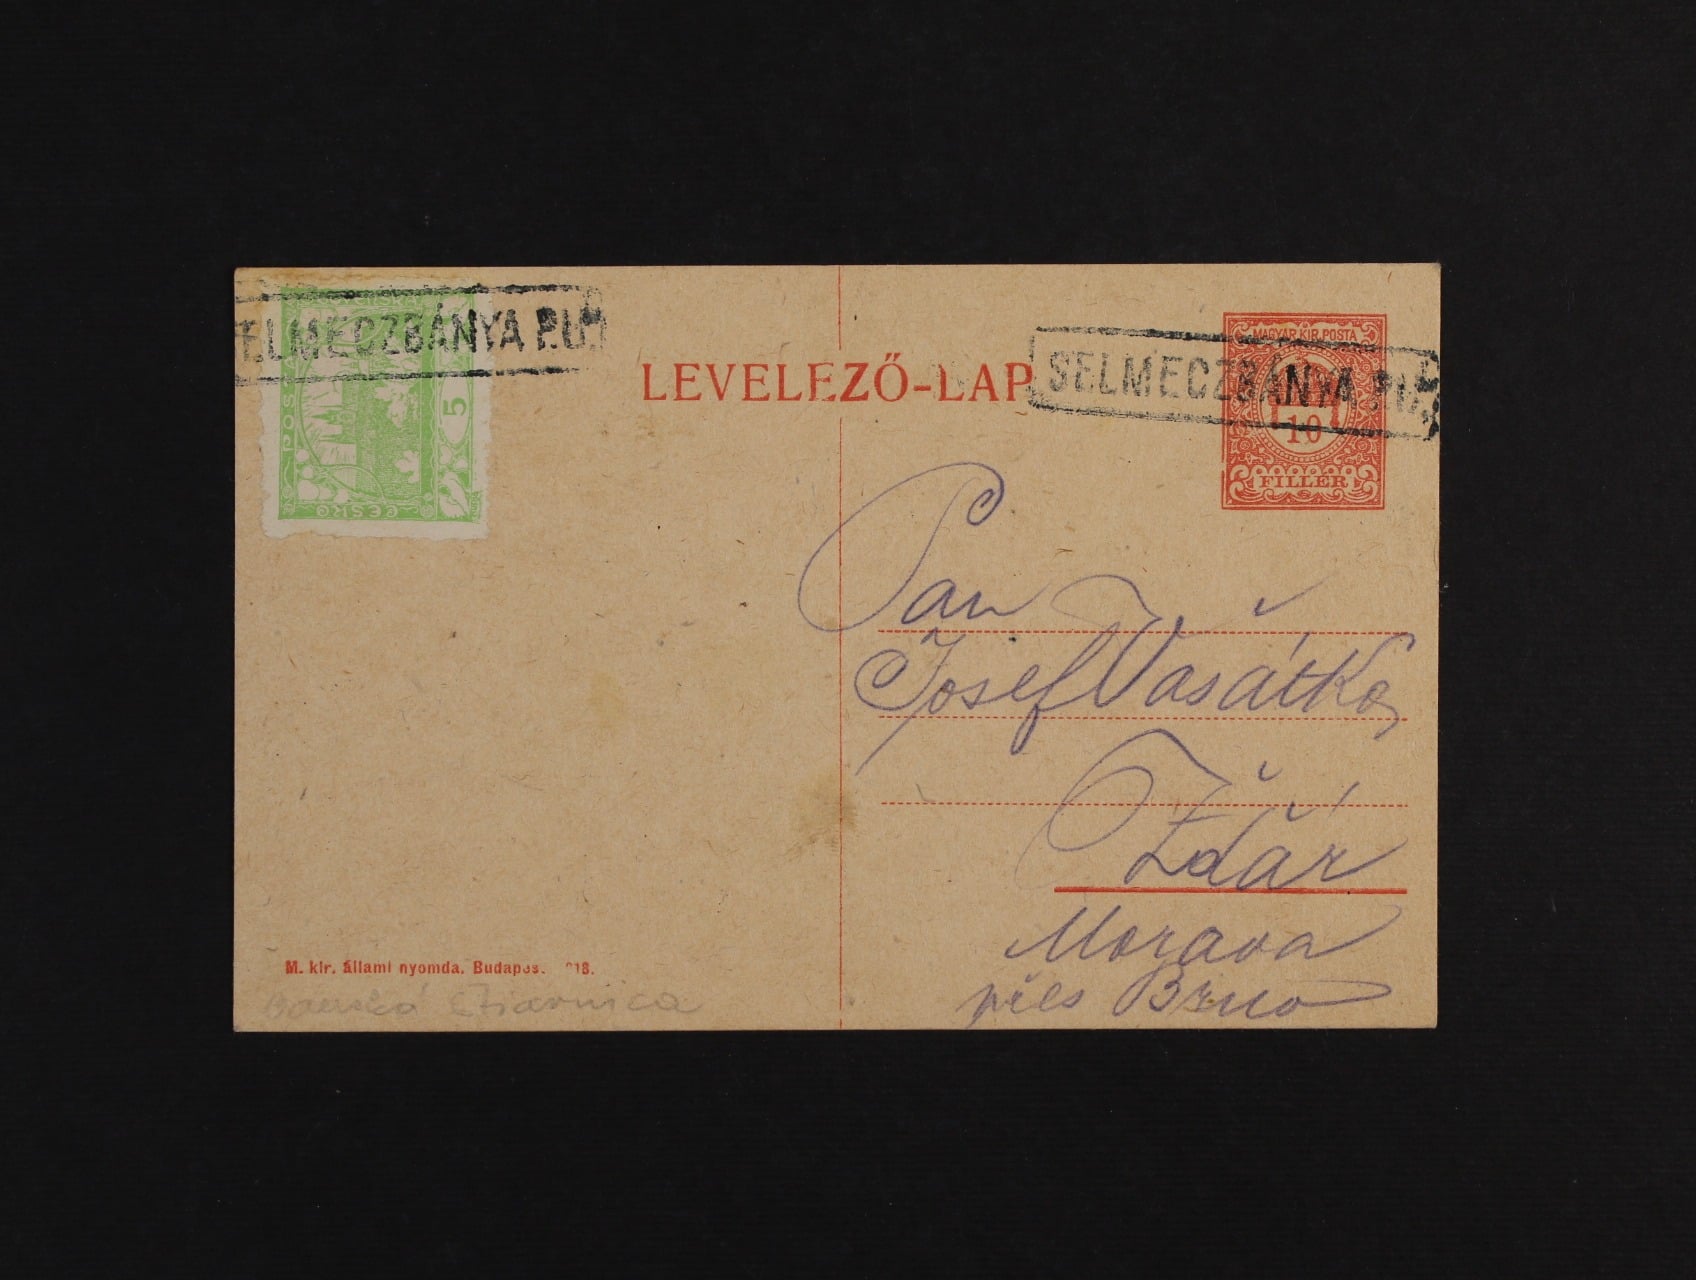 SELMECZBÁNYA P.U.
ELMECZBÁNYA P.U.
POS
5
ČESKO
LEVELEZŐ-LAP
MAGYAR KIR. POSTA
10
FILLÉR
Pan
Josef Vašátko
Žďár
Morava
přes Brno
M. kir. állami nyomda. Budapes. 918.
Banská Štiavnica